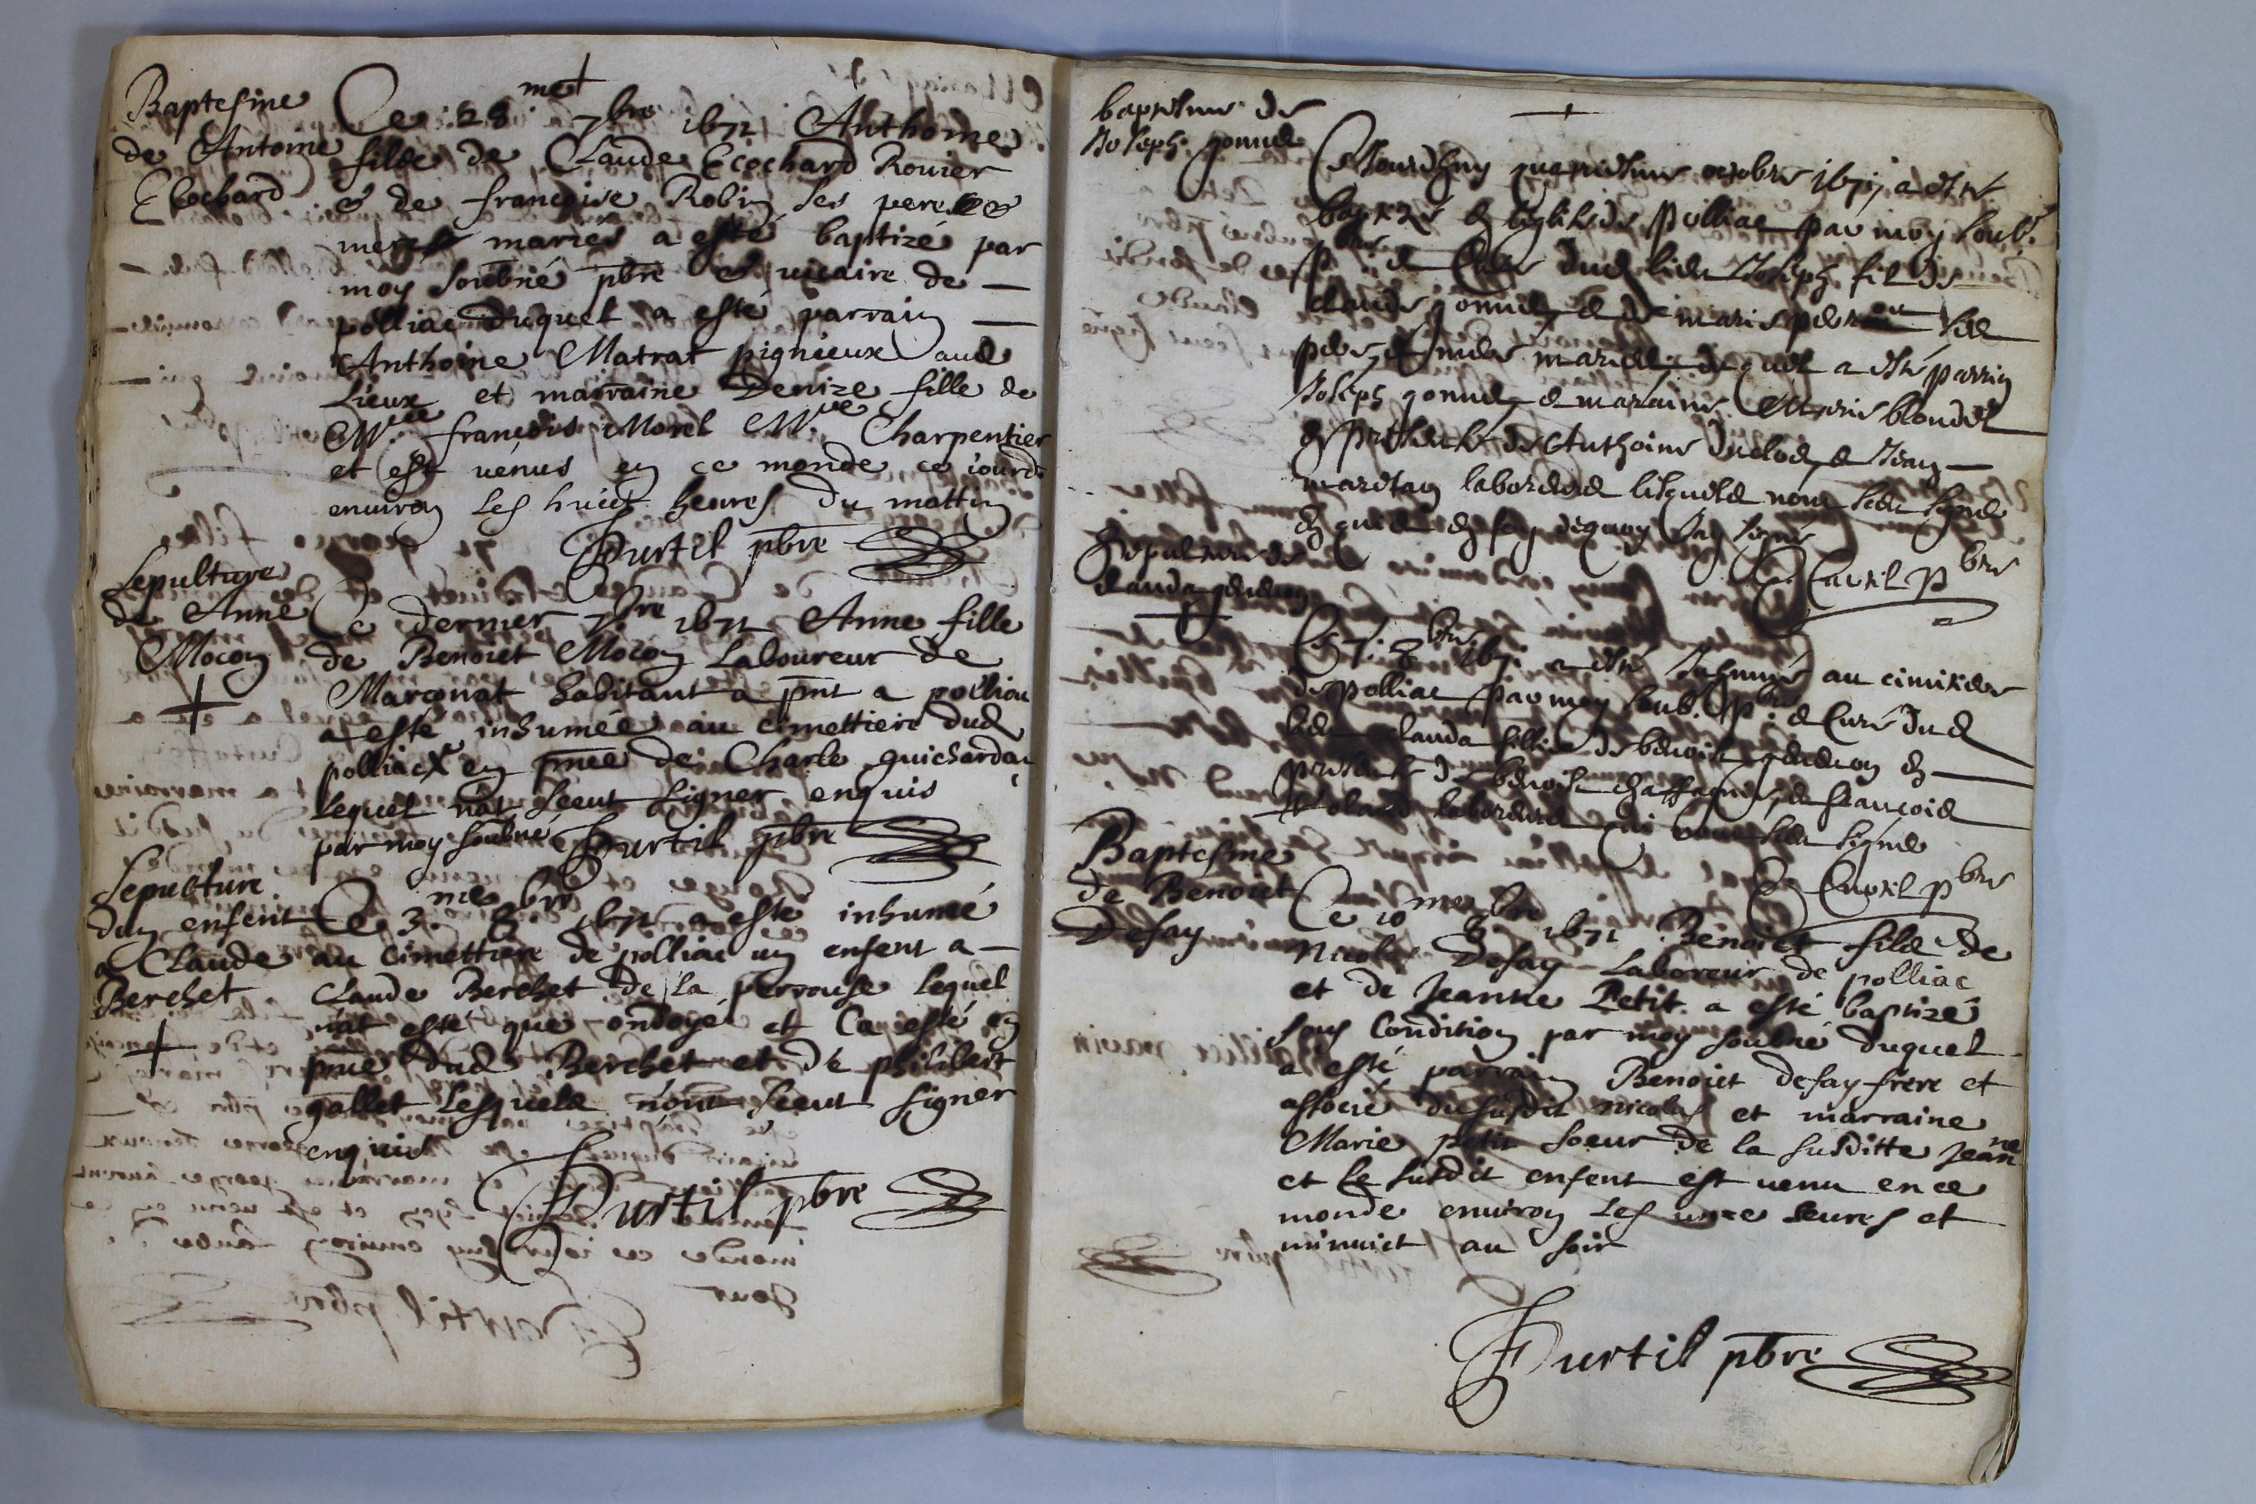 Baptesme
de Antoine
Ecochard
Ce 28me 7bre 1671 Anthoine
filz de Claude Ecochard Rouier
& de françoise Robin ses pere &
mere mariés a esté baptizé par
moy soubné pbre & vicaire de
polliac duquel a esté parrain
Anthoine Matrat pigneux aud
Lieux et marraine Denize fille de
françois Morel Charpentier
et est venus en ce monde ce iourd
environ les huict heures du mattin
Curtil pbre
Sepulture
de Anne
Mocon
Ce dernier 7bre 1671 Anne fille
de Benoict Mocon Laboureur de
Marconat habitant a pnt a polliac
a esté inhumée au cimettiere dud
polliac en pnce de Charle guichardan
Lequel nat sceut signer enquis
par moy soubné Curtil pbre
Sepulture
dun enfent
a Claude
Berchet
Ce 3me 8bre 1671 a esté inhumé
au Cimettiere de polliac un enfent a
Claude Berchet de la perrouse Lequel
nat esté que ondoyé et Ca esté en
pnce dud Berchet et de philibert
gallet Lesquelz nont sceut signer
enquis
Curtil pbre
baptesme de
Joseph gonnet
Ceiourdhuy quatriesme octobre 1671 a esté
baptizé en leglise de polliac par moy soub.
pbre & Curé dud lieu Joseph filz de
claude gonnet & de marie ses
pere & mere mariez duquel a esté parrin
Joseph gonnet & maraine Marie blondel
en presence de Anthoine duclos & Jean
laboureurs lesquelz nont sceu signé
enquis en foy dequoy Jay signé
Cavril pbre
Sepulture de
clauda
Ce 7. 8bre 1671 a esté Inhumé au cimitere
de polliac par moy soub. pbre & Curé dud
lieu clauda fille de benoist en
presence de benoist & françois
laboureurs qui nont sceu signé
Cavril pbre
Baptesme
de Benoict
Defay
Ce 10me 8bre 1671 Benoict filz de
Nicolas Defay Laboreur de polliac
et de Jeanne Petit a esté baptizé
sous Condition par moy soubné duquel
a esté parrain Benoict defay frere et
associé du susdit nicolas et marraine
Marie petit soeur de la susditte Jeanne
et le susdit enfent est venu en ce
monde environ les unze heures et
minuict au soir
Curtil pbre